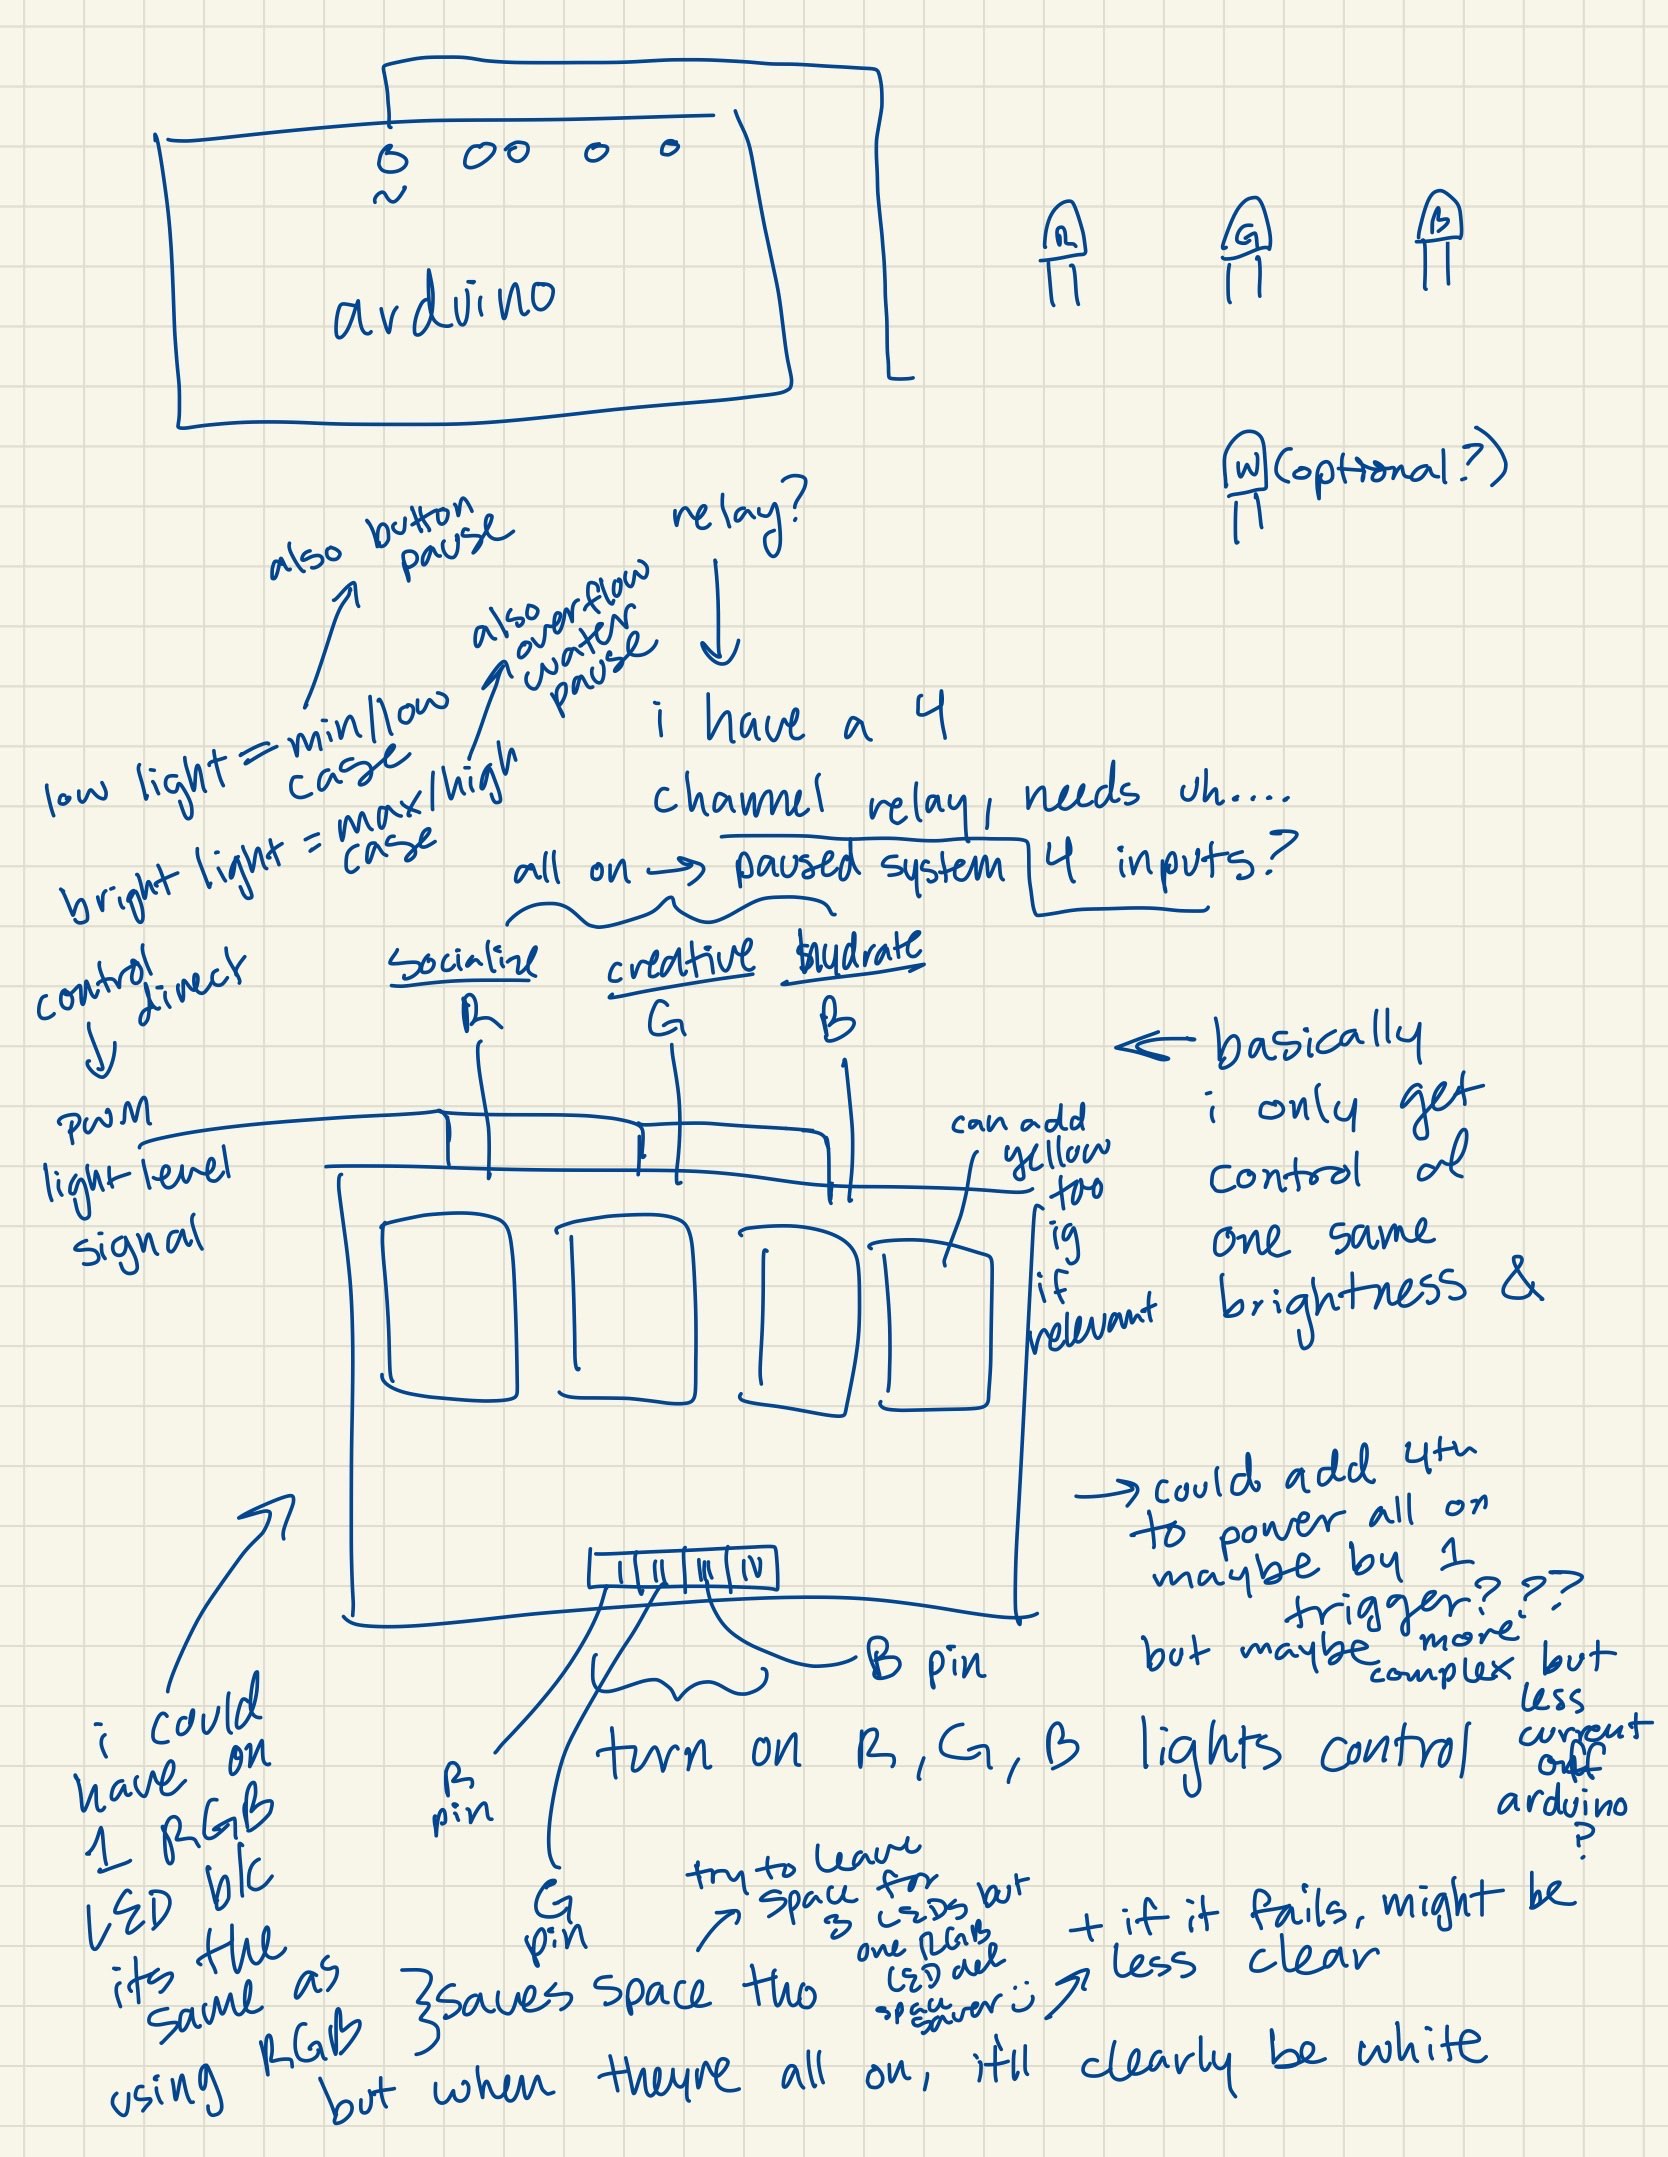 ~
arduino
R
G
B
W (optional?)
also button
pause
relay?
also
overflow
water
pause
low light = min/low
case
bright light = max/high
case
i have a 4
channel relay, needs uh....
4 inputs?
all on → paused system
control
direct
socialize
creative
hydrate
R
G
B
PWM
light level
signal
can add
yellow
too
ig
if
relevant
← basically
i only get
control of
one same
brightness &
→ could add 4th
to power all on
maybe by 1
trigger???
but maybe more
complex but
less
current
off
arduino
?
I II III IV
B pin
R
pin
G
pin
turn on R, G, B lights control
i could
have on
1 RGB
LED b/c
its the
same as
using RGB
} saves space tho
try to leave
space for
3 LEDs but
one RGB
LED def
space
saver :)
+ if it fails, might be
less clear
but when theyre all on, it'll clearly be white